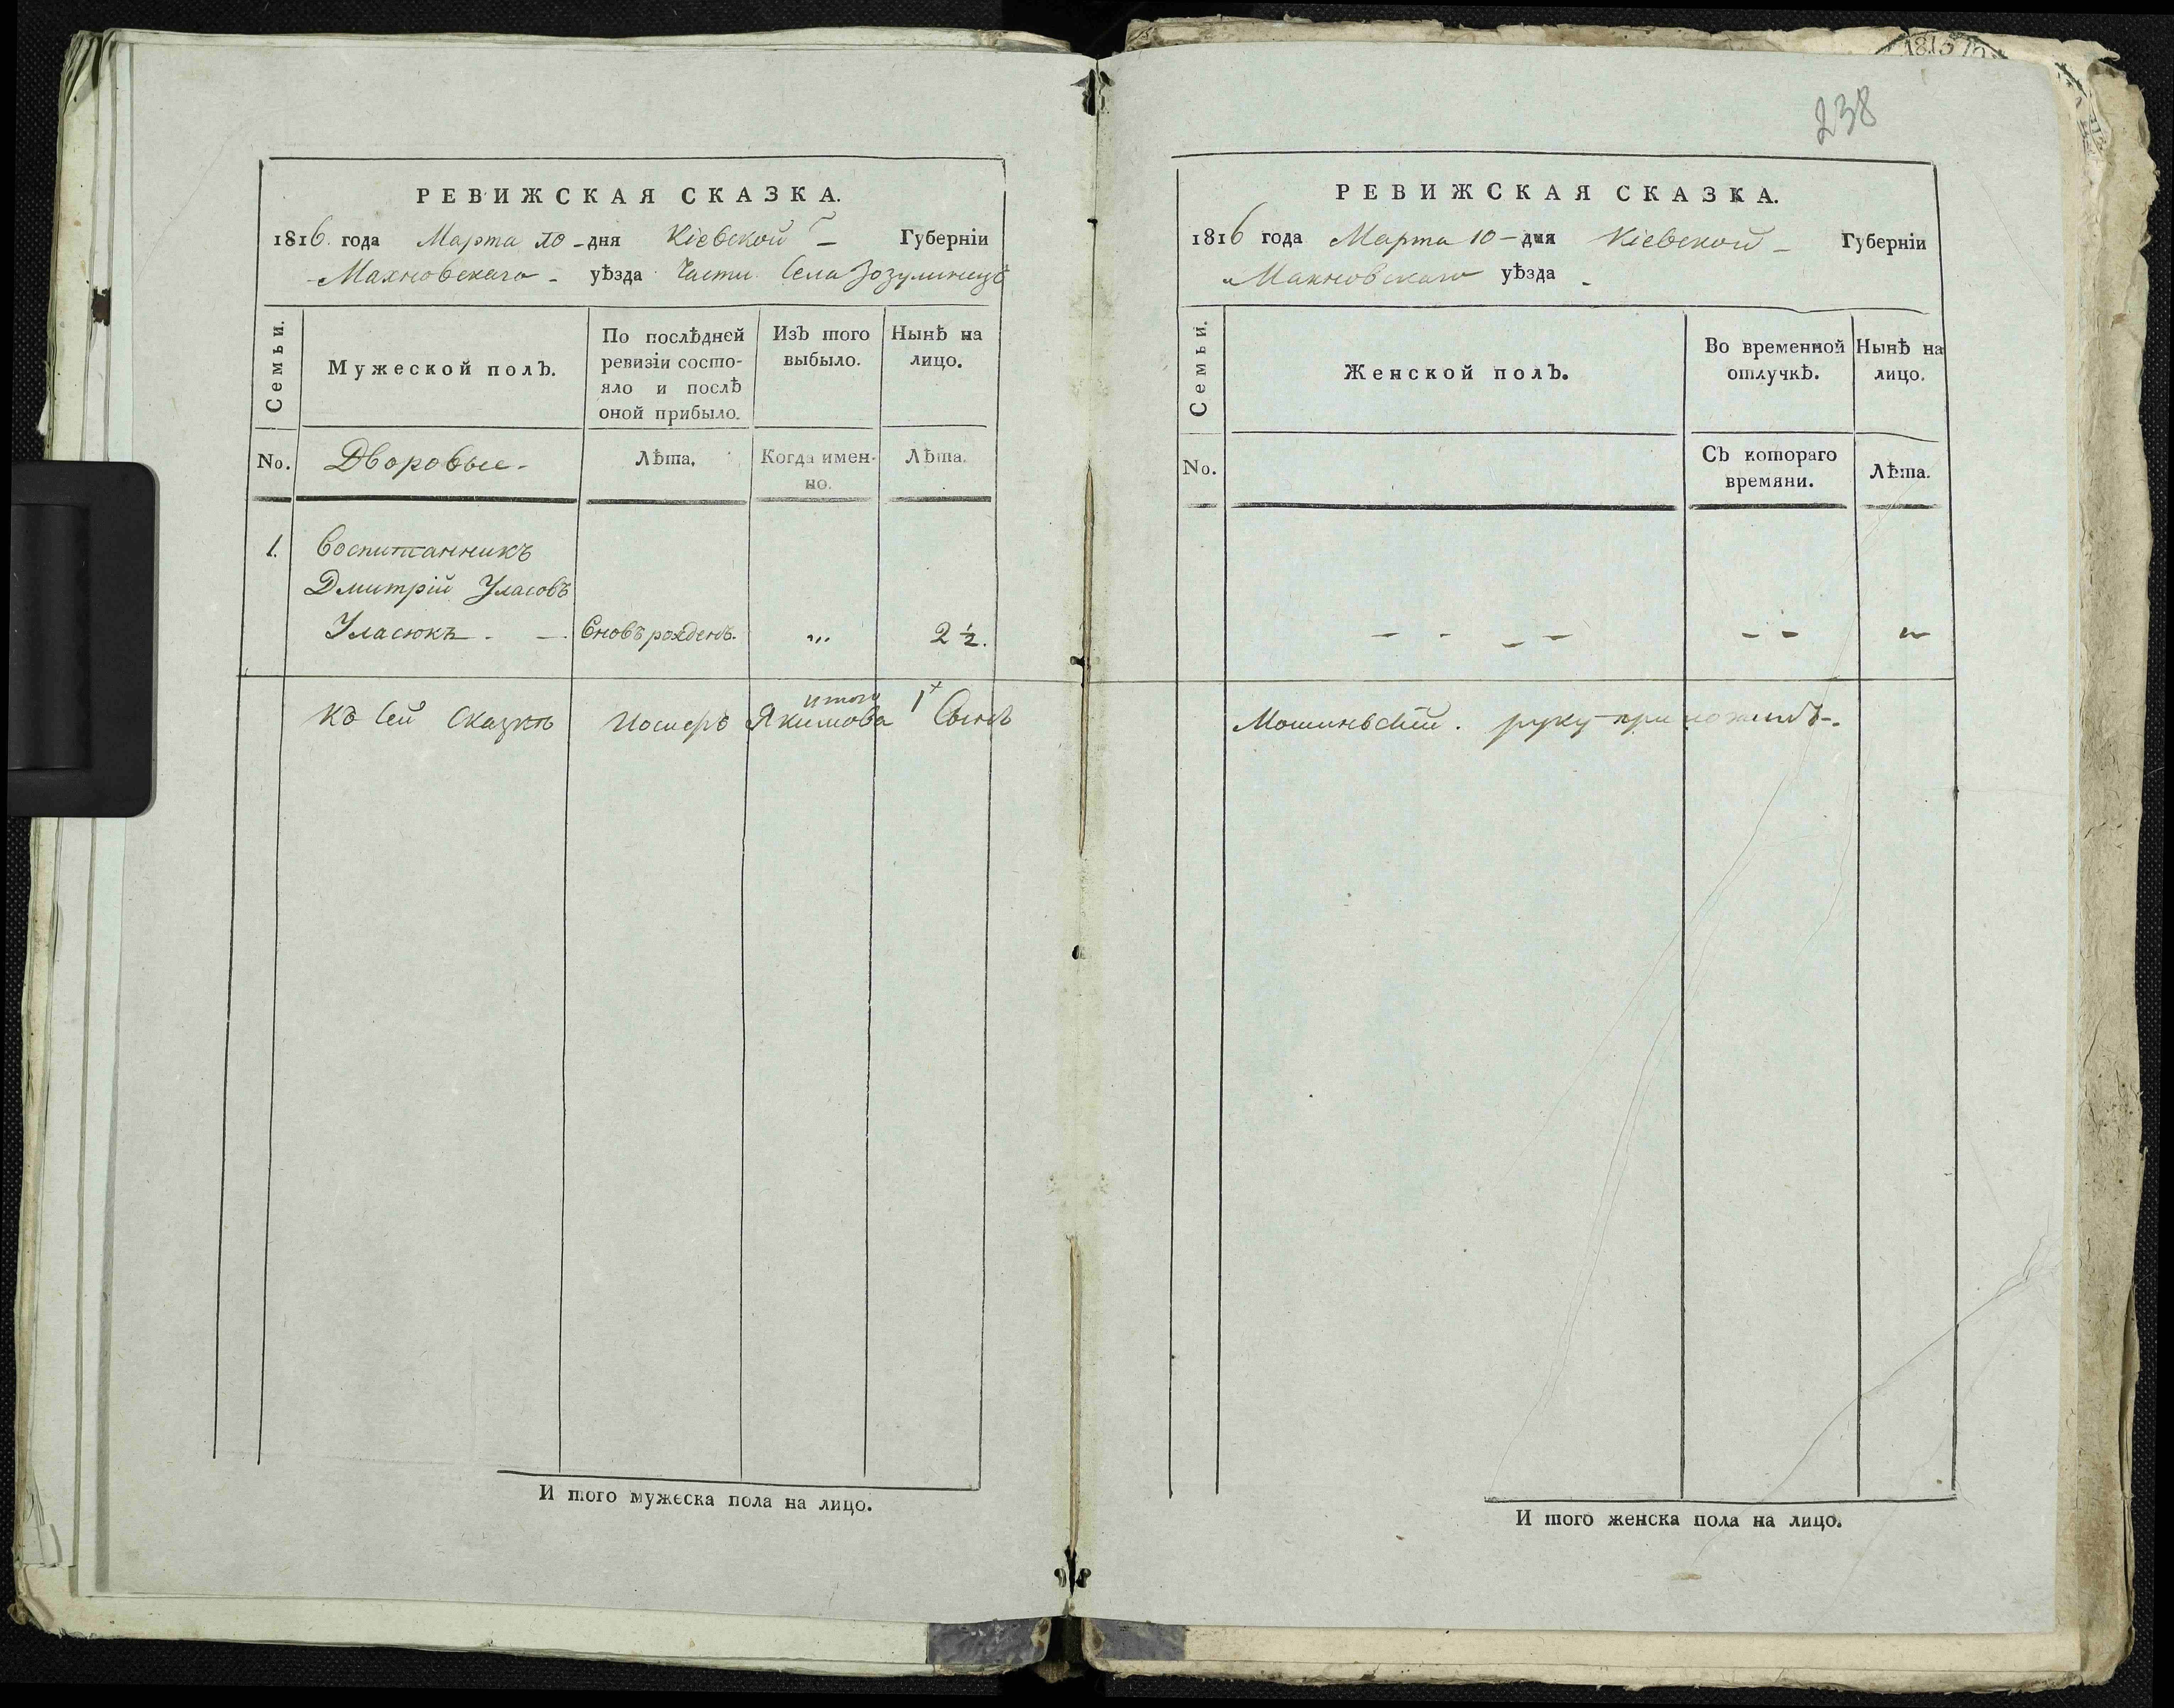 РЕВИЖСКАЯ СКАЗКА.
1816. года Марта 10 - дня Кіевской - Губерніи
Махновскаго - уѣзда Части Села Зозулинецъ
Семьи.
Мужеской полъ.
По послѣдней
ревизіи состо-
яло и послѣ
оной прибыло.
Изъ того
выбыло.
Нынѣ на
лицо.
No.
Дворовые -
Лѣта.
Когда имен-
но.
Лѣта.
1. Воспитанникъ
Дмитрій Уласовъ
Уласюкъ . - . вновь рожденъ. „, 2 ½.
итого 1
Къ сей сказкѣ Іосифъ Якимовъ Сынъ
И того мужеска пола на лицо.
238
РЕВИЖСКАЯ СКАЗКА.
1816 года Марта 10 - дня Кіевской - Губерніи
Махновскаго уѣзда -
Семьи.
Женской полъ.
Во временной
отлучкѣ.
Нынѣ на
лицо.
No.
Съ котораго
времяни.
Лѣта.
- - - - - - "
Мошинскій . руку приложилъ -.
И того женска пола на лицо.